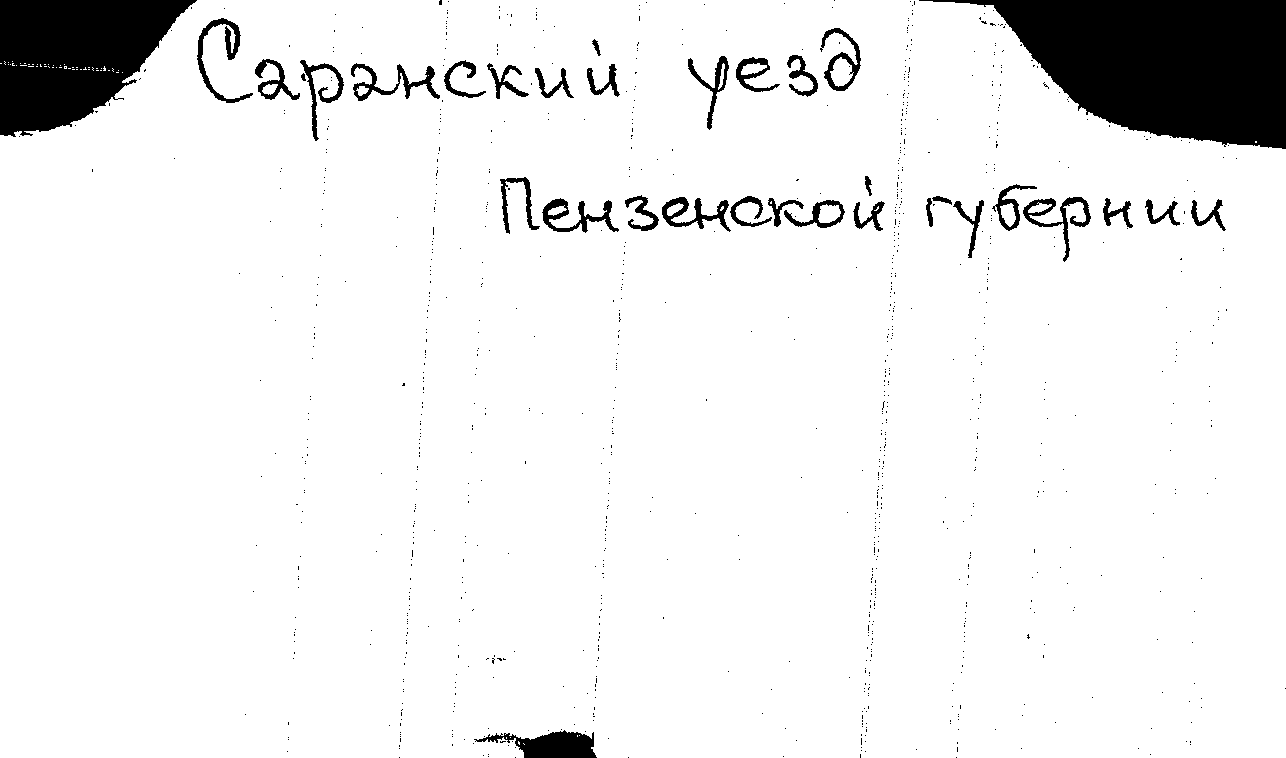 Саранский уезд
Пензенской губернии